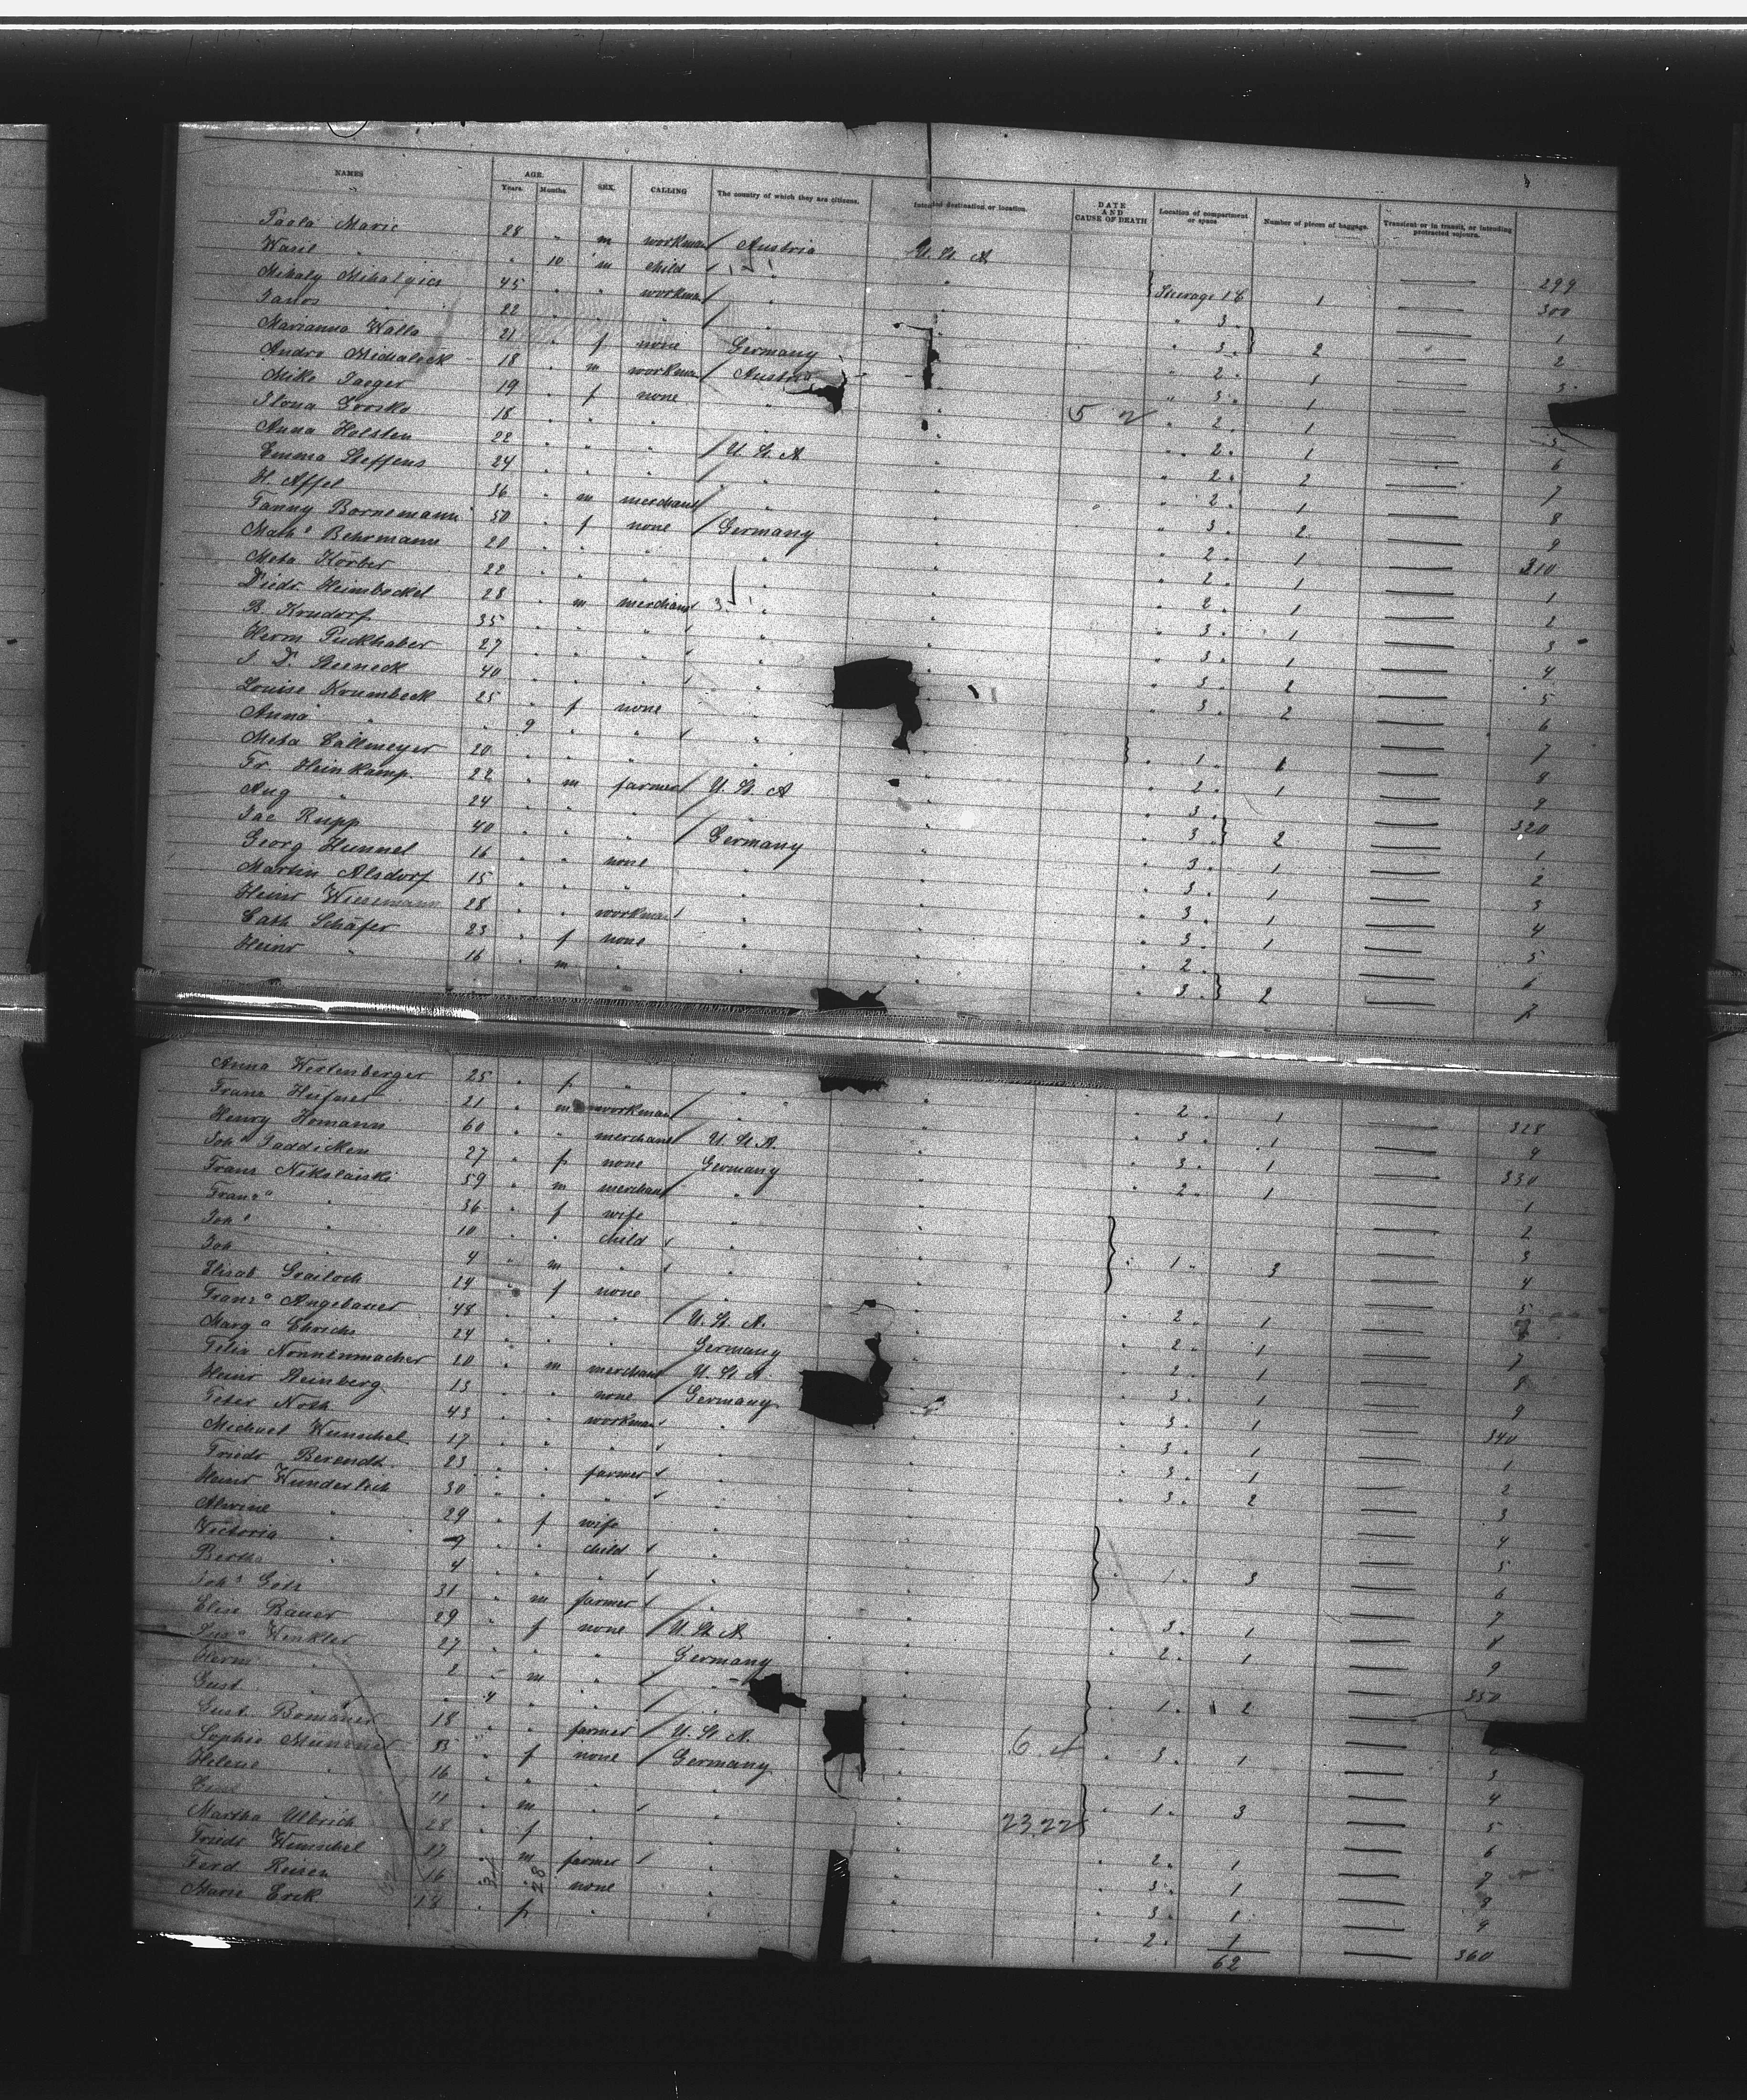 NAMES AGE. Years. Months. SEX. CALLING The country of which they are citizens. Intended destination or location. DATE AND CAUSE OF DEATH Location of compartment or space Number of pieces of baggage. Transient or in transit, or intending protracted sojourn.
Paola Marie 28 " m workman Austria U. St. A Steerage 1 & 1 — 299
Wasil " " 10 m child " " — 300
Mihaly Mihalyics 45 " " workman " " " 3. — 1
Janos " 22 " " " " " " 3. 2 — 2
Marianna Walla 21 " f none Germany " " 2. 1 — 3
Andro Michalick 18 " m workman Austria " " 3. 1 —
Mike Jaeger 19 " f none " " 5 2 " 2. 1 — 5
Ilona 18 " " " " " " 2. 1 — 6
Anna Holsten 22 " " " U. St. A " " 2. 2 — 7
Emma Steffens 24 " " " " " " 2. 1 — 8
H. Affel 36 " m merchant " " " 3. 2 — 9
Fanny Bornemann 50 " f none Germany " " 2. 1 — 310
Math^e Behrmann 20 " " " " " " 2. 1 — 1
Meta Körber 22 " " " " " " 2. 1 — 2
Diedr. Heimbockel 28 " m merchant " " " 3. 1 — 3
B. Korndorf 35 " " " " " " 3. 1 — 4
Herm Puckhaber 27 " " " " " " 3. 2 — 5
J. D. Steineck 40 " " " " " " 3. 2 — 6
Louise Krumbeck 25 " f none " " — 7
Anna " " 9 " " " " " 1. 1 — 8
Meta Callmeyer 20 " " " " " " 2. 1 — 9
Fr. Heinkamp 22 " m farmer U. St. A " " 3. — 320
Aug " 24 " " " " " " 3. 2 — 1
Jac Rupp 40 " " " Germany " " 3. 1 — 2
Georg Hummel 16 " " none " " " 3. 1 — 3
Martin Alsdorf 15 " " " " " " 3. 1 — 4
Heinr Wiesemann 28 " " workman " " " 3. 1 — 5
Cath Schäfer 23 " f none " " " 2. — 6
Heinr " 16 " m " " " " 3. 2 — 7
Anna Westenberger 25 " f " " " " 2. 1 — 328
Franz Hüfner 21 " m workman " " " 3. 1 — 9
Henry Homann 60 " " merchant U. St. A. " " 3. 1 — 330
Joh^a Taddicken 27 " f none Germany " " 2. 1 — 1
Franz Nikolaiski 59 " m merchant " " — 2
Franz^a " 36 " f wife " " — 3
Joh^a " 10 " " child " " " 1. 3 — 4
Joh " 4 " m " " " — 5
Elisab Grailoch 24 " f none " " " 2. 1 —
Franz^a Angebauer 48 " " " U. St. A. " " 2. 1 — 7
Marg^a Ehrichs 24 " " " Germany " " 2. 1 — 8
Felix Nonnenmacher 20 " m merchant U. St. A. " " 3. 1 — 9
Heinr Steinberg 13 " " none Germany " " 3. 1 — 340
Peter Noth 43 " " workman " " " 3. 1 — 1
Michael Wunschel 17 " " " " " " 3. 1 — 2
Friedr Berendt 23 " " farmer " " " 3. 2 — 3
Heinr Wunderlich 30 " " " " " — 4
Alwine " 29 " f wife " " — 5
Victoria " 9 " " child " " " 1. 3 — 6
Bertha " 4 " " " " " — 7
Joh^s Götz 31 " m farmer " " " 3. 1 — 8
Elise Bauer 29 " f none U. St. A " " 2. 1 — 9
Winkler 27 " " " Germany " — 350
Herm " 2 " m " " " " 1. 2
Gust " " 4 " " " "
Gust. 18 " " farmer U. St. A. " 6 " 3. 1 — 3
Sophie 33 " f none Germany " — 4
Helene " 16 " " " " " " 1. 3 — 5
11 " m " " " 23 22 — 6
Martha Ulbrich 28 " f " " " " 2. 1 — 7
Friedr Wunschel 27 " m farmer " " " 3. 1 — 8
Ferd Reisen 16 " " none " " " 3. 1 — 9
Marie Erck 18 " f " " " " 2. 1 — 360
62